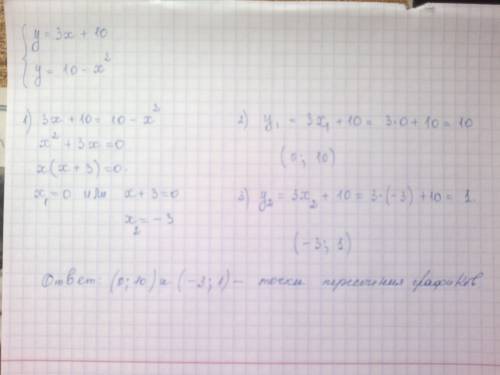 y = 3x + 10
y = 10 - x²
1) 3x + 10 = 10 - x²
x² + 3x = 0
x(x + 3) = 0.
x₁ = 0 или x + 3 = 0
x₂ = -3
2) y₁ = 3x₁ + 10 = 3·0 + 10 = 10
(0; 10)
3) y₂ = 3x₂ + 10 = 3·(-3) + 10 = 1.
(-3; 1)
Ответ: (0; 10) и (-3; 1) - точки пересечения графиков